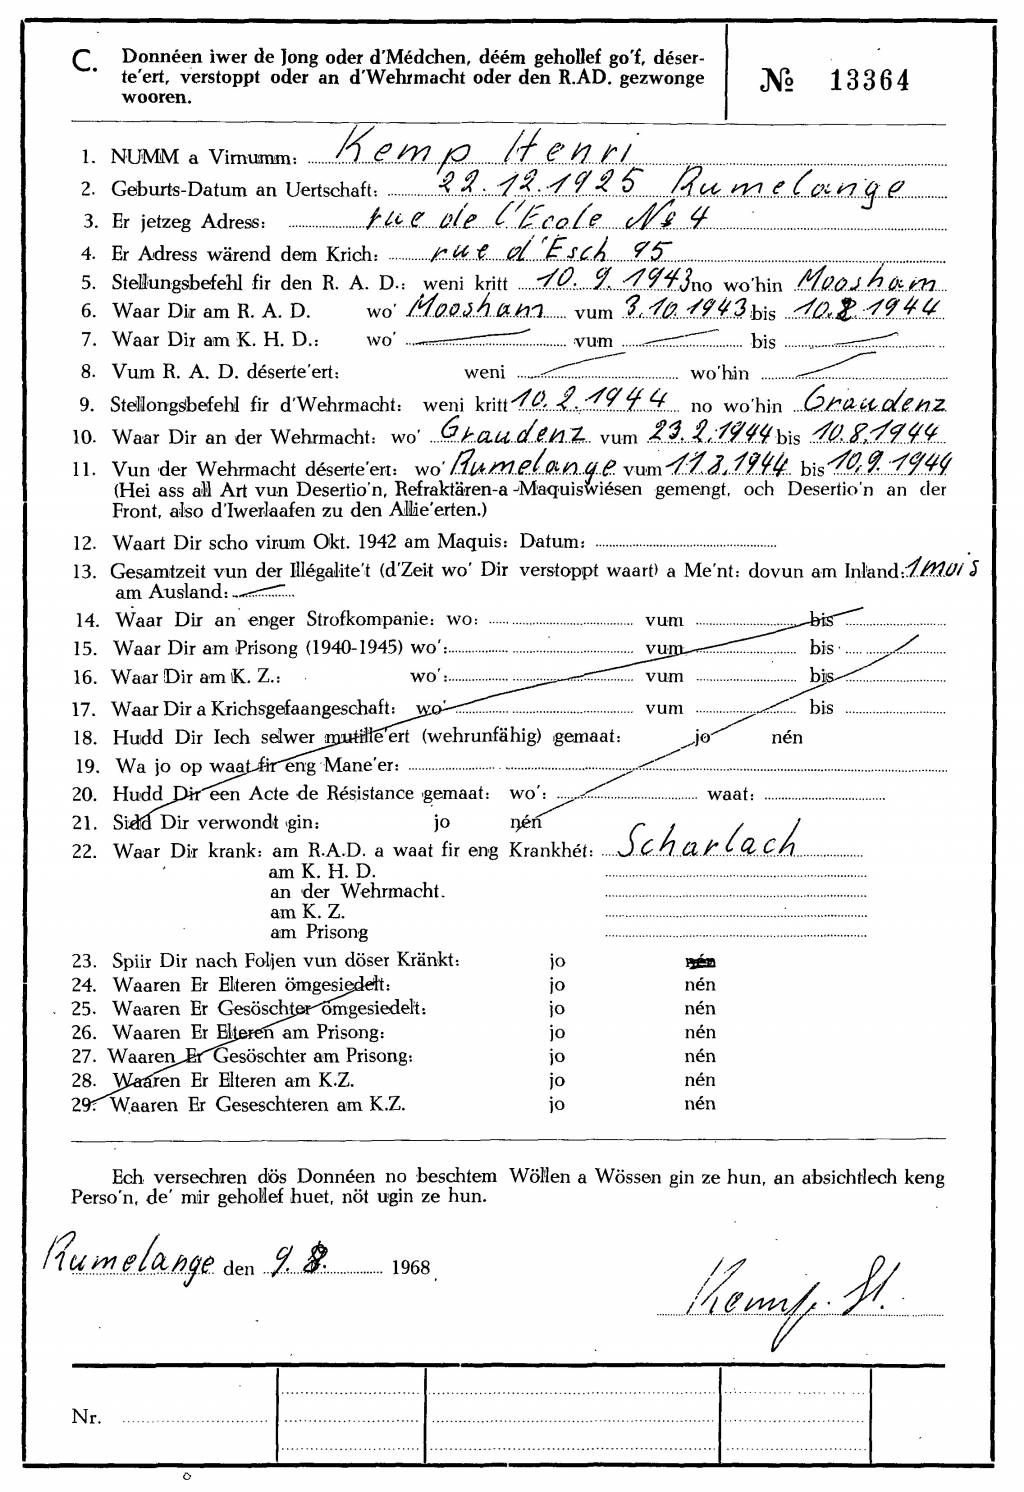 C. Donnéen iwer de Jong oder d'Médchen, déém gehollef go'f, déser-
te'ert, verstoppt oder an d'Wehrmacht oder den R.AD. gezwonge
wooren.
№ 13364
1. NUMM a Virnumm: Kemp Henri
2. Geburts-Datum an Uertschaft: 22.12.1925 Rumelange
3. Er jetzeg Adress: rue de l'Ecole No 4
4. Er Adress wärend dem Krich: rue d'Esch 95
5. Stellungsbefehl fir den R. A. D.: weni kritt 10. 9. 1943 no wo'hin Moosham
6. Waar Dir am R. A. D. wo' Moosham vum 3.10.1943 bis 10.2.1944
7. Waar Dir am K. H. D.: wo' vum bis
8. Vum R. A. D. déserte'ert: weni wo'hin
9. Stellongsbefehl fir d'Wehrmacht: weni kritt 10. 2. 1944 no wo'hin Graudenz
10. Waar Dir an der Wehrmacht: wo' Graudenz vum 23.2.1944 bis 10.8.1944
11. Vun der Wehrmacht déserte'ert: wo' Rumelange vum 11.8.1944 bis 10.9.1944
(Hei ass all Art vun Desertio'n, Refraktären-a -Maquiswiésen gemengt, och Desertio'n an der
Front, also d'Iwerlaafen zu den Allie'erten.)
12. Waart Dir scho virum Okt. 1942 am Maquis: Datum:
13. Gesamtzeit vun der Illégalite't (d'Zeit wo' Dir verstoppt waart) a Me'nt: dovun am Inland: 1 mois
am Ausland:
14. Waar Dir an enger Strofkompanie: wo: vum bis
15. Waar Dir am Prisong (1940-1945) wo': vum bis
16. Waar Dir am K. Z.: wo': vum bis
17. Waar Dir a Krichsgefaangeschaft: wo' vum bis
18. Hudd Dir Iech selwer mutille'ert (wehrunfähig) gemaat: jo nén
19. Wa jo op waat fir eng Mane'er:
20. Hudd Dir een Acte de Résistance gemaat: wo': waat:
21. Sidd Dir verwondt gin: jo nén
22. Waar Dir krank: am R.A.D. a waat fir eng Krankhét: Scharlach
am K. H. D.
an der Wehrmacht.
am K. Z.
am Prisong
23. Spiir Dir nach Foljen vun döser Kränkt: jo nén
24. Waaren Er Elteren ömgesiedelt: jo nén
25. Waaren Er Gesöschter ömgesiedelt: jo nén
26. Waaren Er Elteren am Prisong: jo nén
27. Waaren Er Gesöschter am Prisong: jo nén
28. Waaren Er Elteren am K.Z. jo nén
29. Waaren Er Geseschteren am K.Z. jo nén
Ech versechren dös Donnéen no beschtem Wöllen a Wössen gin ze hun, an absichtlech keng
Perso'n, de' mir gehollef huet, nöt ugin ze hun.
Rumelange den 9. 8. 1968
Kemp. H.
Nr.